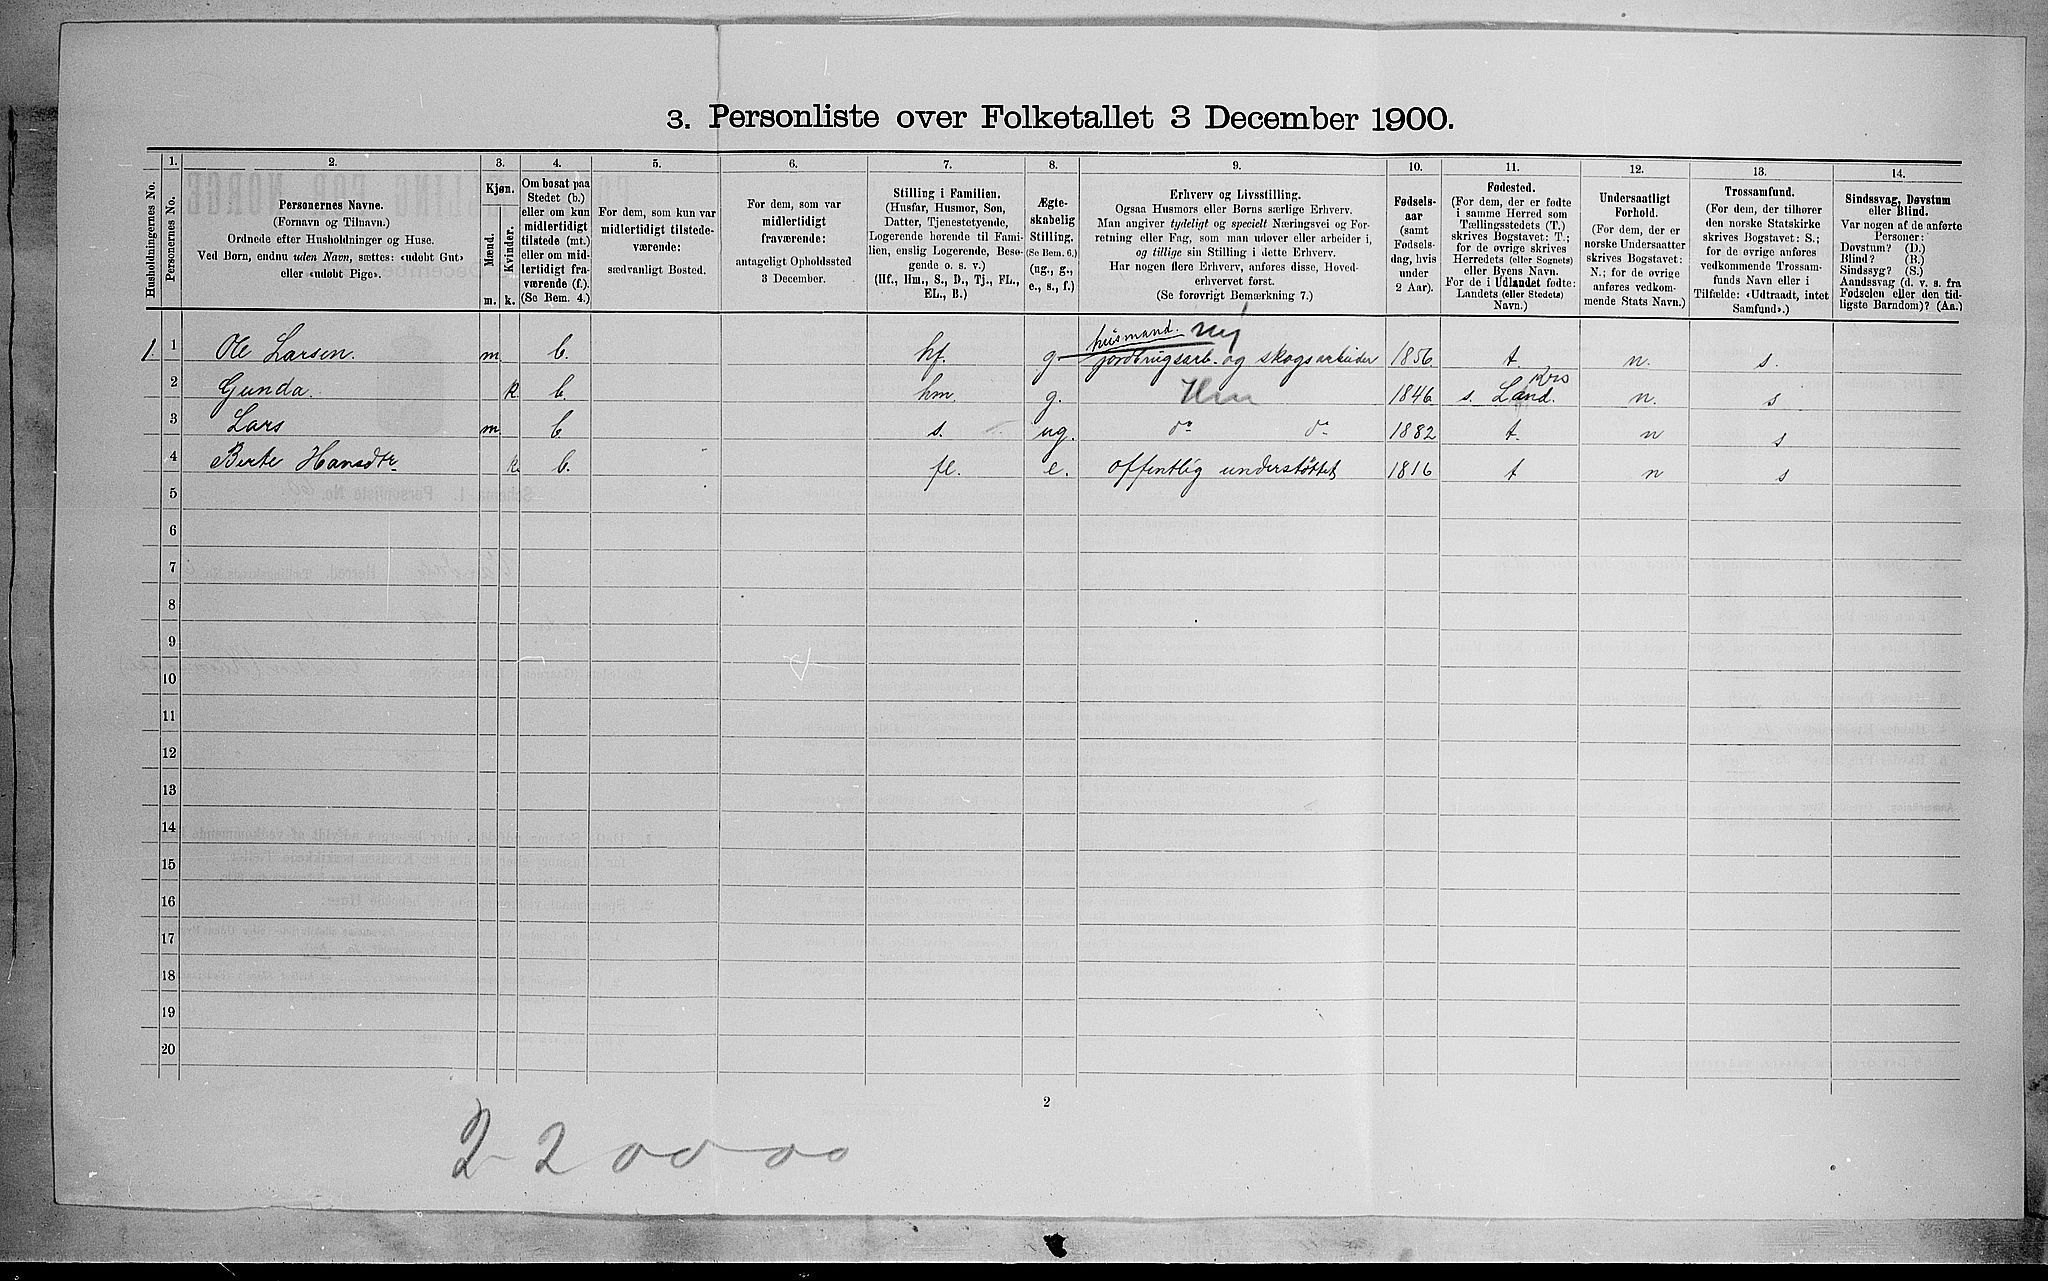 3. Personliste over Folketallet 3 December 1900.
Husholdningernes No.
1.
Personernes No.
2.
Personernes Navne.
(Fornavn og Tilnavn.)
Ordnede efter Husholdninger og Huse.
Ved Børn, endnu uden Navn, sættes: «udøbt Gut»
eller «udøbt Pige».
3.
Kjøn.
Mænd.
Kvinder.
m.
k.
4.
Om bosat paa
Stedet (b.)
eller om kun
midlertidigt
tilstede (mt.)
eller om mid-
lertidigt fra-
værende (f.).
(Se Bem. 4.)
5.
For dem, som kun var
midlertidigt tilstede-
værende:
sædvanligt Bosted.
6.
For dem, som var
midlertidigt
fraværende:
antageligt Opholdssted
3 December.
7.
Stilling i Familien.
(Husfar, Husmor, Søn,
Datter, Tjenestetyende,
Logerende hørende til Fami-
lien, enslig Logerende, Besø-
gende o. s. v.)
(Hf., Hm., S., D., Tj., FL.,
EL., B.)
8.
Ægte-
skabelig
Stilling.
(Se Bem. 6.)
(ug., g.,
e., s., f.)
9.
Erhverv og Livsstilling.
Ogsaa Husmors eller Børns særlige Erhverv.
Man angiver tydeligt og specielt Næringsvei og For-
retning eller Fag, som man udøver eller arbeider i,
og tillige sin Stilling i dette Erhverv.
Har nogen flere Erhverv, anføres disse, Hoved-
erhvervet først.
(Se forøvrigt Bemærkning 7.)
10.
Fødsels-
aar
(samt
Fødsels-
dag, hvis
under
2 Aar).
11.
Fødested.
(For dem, der er fødte
i samme Herred som
Tællingsstedets (T.)
skrives Bogstavet: T.;
for de øvrige skrives
Herredets (eller Sognets)
eller Byens Navn.
For de i Udlandet fødte:
Landets (eller Stedets)
Navn.)
12.
Undersaatligt
Forhold.
(For dem, der er
norske Undersaatter
skrives Bogstavet:
N.; for de øvrige
anføres vedkom-
mende Stats Navn.)
13.
Trossamfund.
(For dem, der tilhører
den norske Statskirke
skrives Bogstavet: S.;
for de øvrige anføres
vedkommende Trossam-
funds Navn eller i
Tilfælde: «Udtraadt, intet
Samfund».)
14.
Sindssvag, Døvstum
eller Blind.
Var nogen af de anførte
Personer:
Døvstum? (D.)
Blind? (B.)
Sindssyg? (S.)
Aandssvag (d. v. s. fra
Fødselen eller den tid-
ligste Barndom)? (Aa.)
husmand.
1. 1 Ole Larsen. m. b. hf. g. jordbrugsarb. og skogsarbeider 1856. t. n. s.
Kro
2 Gunda. k. b. hm. g. Hm 1846. s. Land. n. s
3 Lars m b s. ug. do do 1882 t. n s
4 Berte Hansdtr k b. fl. e. offentlig understøttet 1816 t n s
5
6
7
8
9
10
11
12
13
14
15
16
17
18
19
20
2
2 2 00 00